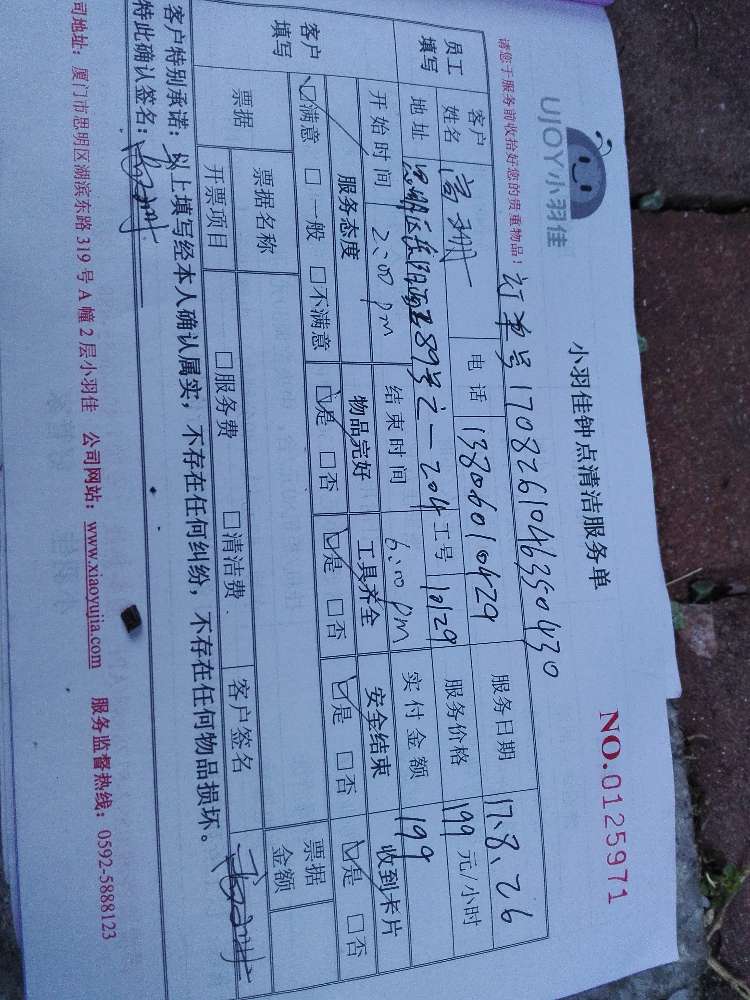 UJOY小羽佳
小羽佳钟点清洁服务单
NO.0125971
请您于服务前收拾好您的贵重物品！ 订单号170826104635 0430
员工填写 客户姓名 高 电话 13806010429 服务日期 17.8.26
地址 思明区 89号之一204 工号 10129 服务价格 199 元/小时
开始时间 2:00 pm 结束时间 6:00 pm 实付金额 199
客户填写 服务态度 物品完好 工具齐全 安全结束 收到卡片
☑满意 □一般 □不满意 ☑是 □否 ☑是 □否 ☑是 □否 ☑是 □否
票据 票据名称 票据金额
开票项目 □服务费 □清洁费 客户签名
客户特别承诺：以上填写经本人确认属实，不存在任何纠纷，不存在任何物品损坏。
特此确认签名：
司地址：厦门市思明区湖滨东路 319 号 A 幢 2 层小羽佳 公司网站：www.xiaoyujia.com 服务监督热线：0592-5888123